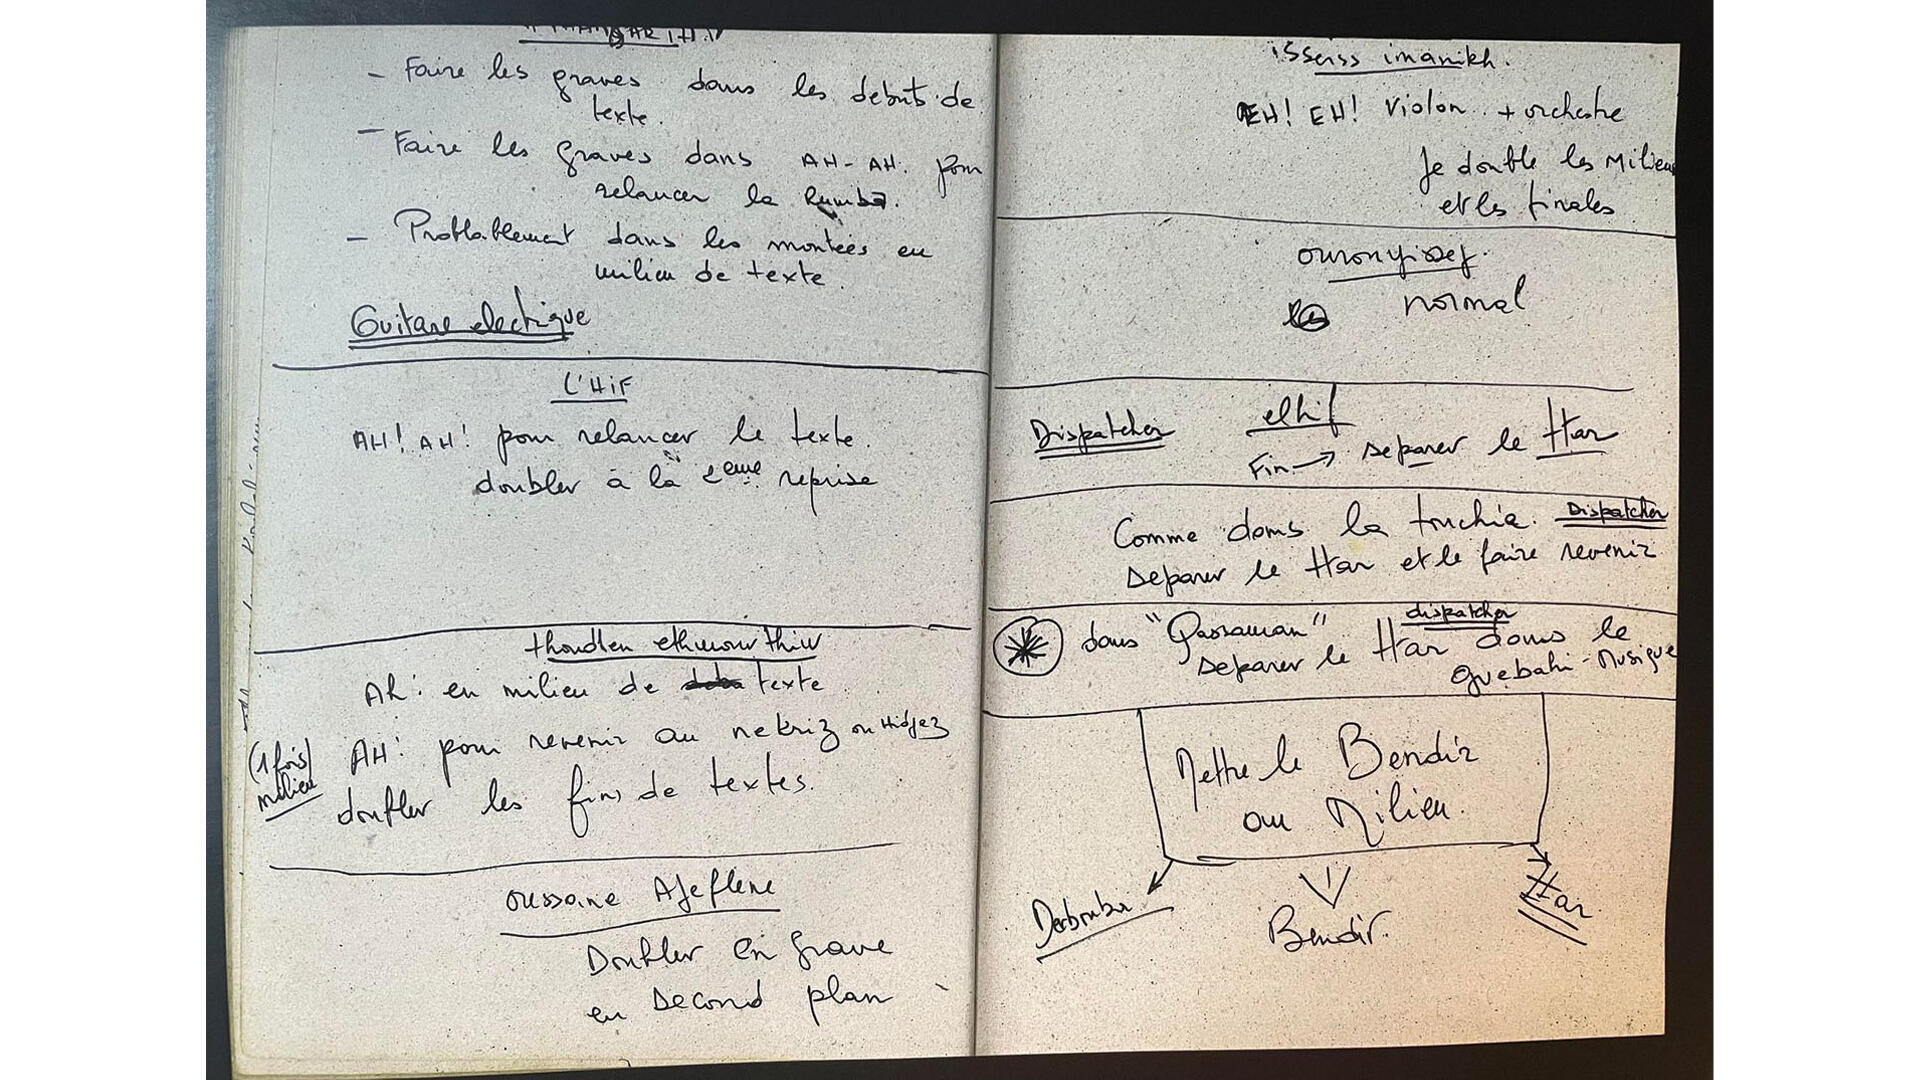 - Faire les graves dans les debuts de
texte.
- Faire les graves dans AH-AH. pour
relancer la Rumba.
- Problablement dans les montées en
milieu de texte.
Guitare electrique
L'HiF
AH! AH! pour relancer le texte
doubler à la 2eme reprise
thoudlen
Ah: en milieu de texte
(1 fois)
milieu
AH: pour revenir au nekriz ou Hidjez
doubler les fins de textes.
oussone Ajeflene
Doubler en grave
en second plan
isserss imanikh.
EH! EH! Violon + orchestre
Je double les Milieux
et les finales
normal
Dispatcher
elhif
Fin → separer le Har
Comme dans la touchia. Dispatcher
separer le Har et le faire revenir
dispatcher
dans "Qassaman"
separer le Har dans le
Guebahi-Musique
Mettre le Bendir
au Milieu.
Derbouka
Bendir.
Har